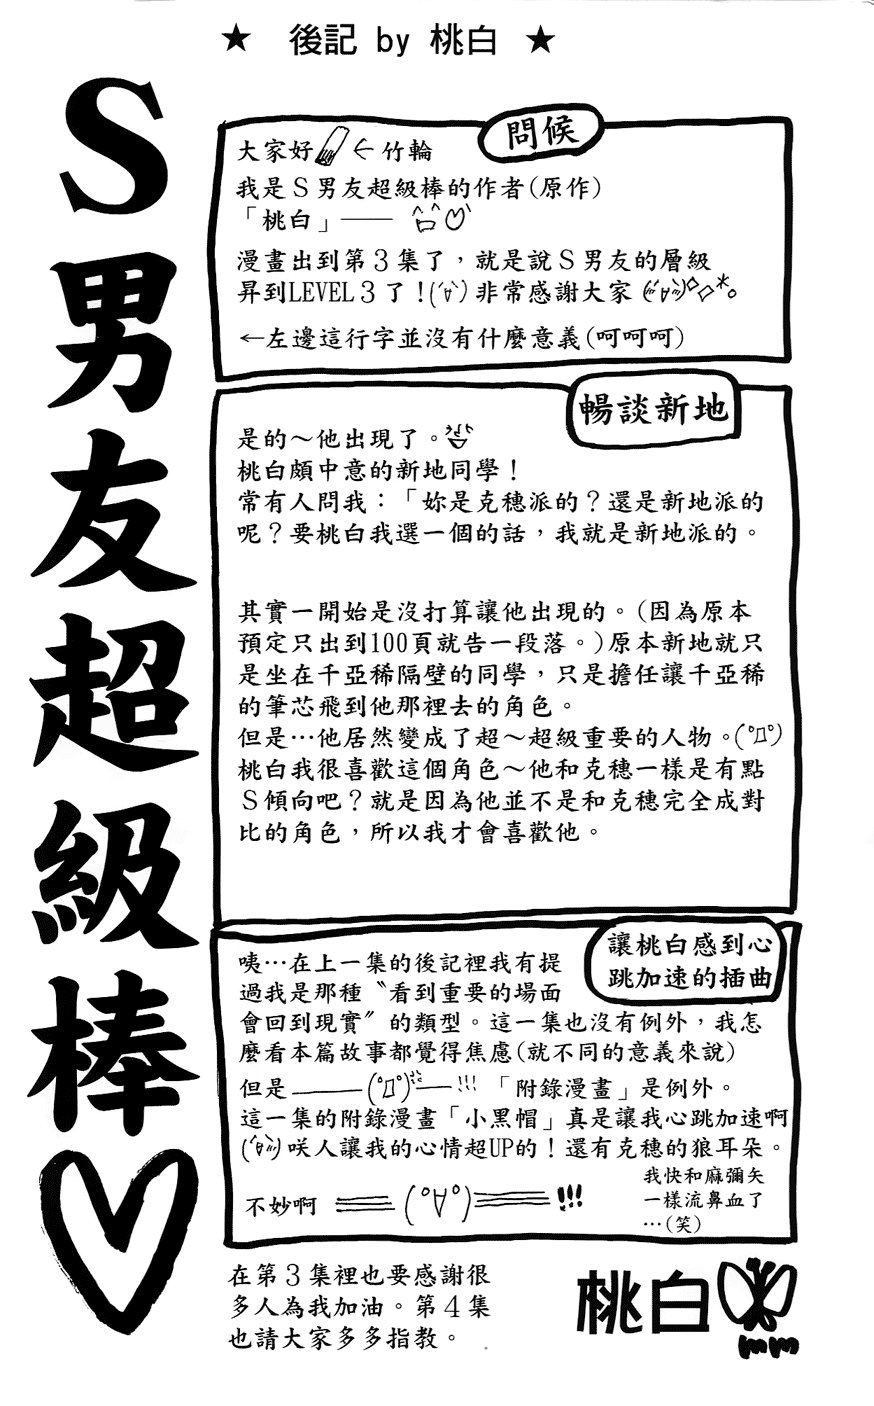 ★ 後記 by 桃白 ★
S男友超級棒♡
問候
大家好 ←竹輪
我是S男友超級棒的作者(原作)
「桃白」——
漫畫出到第3集了，就是說S男友的層級
昇到LEVEL3了！(ˊ∀ˋ)非常感謝大家
←左邊這行字並沒有什麼意義(呵呵呵)
暢談新地
是的～他出現了。
桃白頗中意的新地同學！
常有人問我：「妳是克穗派的？還是新地派的
呢？要桃白我選一個的話，我就是新地派的。
其實一開始是沒打算讓他出現的。(因為原本
預定只出到100頁就告一段落。)原本新地就只
是坐在千亞稀隔壁的同學，只是擔任讓千亞稀
的筆芯飛到他那裡去的角色。
但是…他居然變成了超～超級重要的人物。(°Д°)
桃白我很喜歡這個角色～他和克穗一樣是有點
S傾向吧？就是因為他並不是和克穗完全成對
比的角色，所以我才會喜歡他。
讓桃白感到心
跳加速的插曲
咦…在上一集的後記裡我有提
過我是那種〝看到重要的場面
會回到現實〞的類型。這一集也沒有例外，我怎
麼看本篇故事都覺得焦慮(就不同的意義來說)
但是———(°Д°)—!!!「附錄漫畫」是例外。
這一集的附錄漫畫「小黑帽」真是讓我心跳加速啊
咲人讓我的心情超UP的！還有克穗的狼耳朵。
不妙啊 ===(°∀°)===!!!
我快和麻彌矢
一樣流鼻血了
…(笑)
在第3集裡也要感謝很
多人為我加油。第4集
也請大家多多指教。
桃白